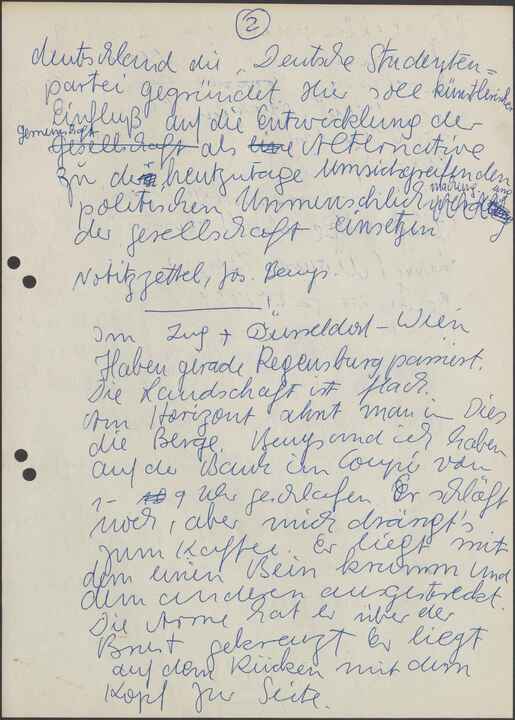 2
deutschland die "Deutsche Studenten=
partei gegründet. Hier soll künstlerischer
Einfluß auf die Entwicklung der
Gemeinschaft
Gesellschaft als Alternative
zu der heutzutage umsichgreifenden
politischen Unmenschlich
machung und
der gesellschaft einsetzen
Notitzzettel, Jos. Beuys.
Im Zug + Düsseldorf – Wien
Haben gerade Regensburg passiert.
Die Landschaft ist flach.
Am Horizont ahnt man in Dies
die Berge. Beuys und ich haben
auf der Bank im Coupé von
1– 9 Uhr geschlafen. Er schläft
noch, aber mich drängt's
zum Kaffee. Er liegt mit
dem einen Bein krumm und
dem anderen ausgestreckt.
Die Arme hat er über der
Brust gekreuzt. Er liegt
auf dem Rücken mit dem
Kopf zur Seite.